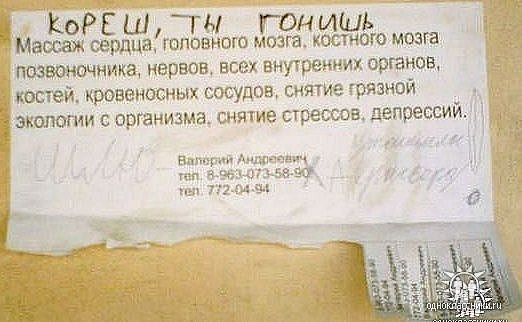 КОРЕШ, ТЫ ГОНИШЬ
Массаж сердца, головного мозга, костного мозга
позвоночника, нервов, всех внутренних органов,
костей, кровеносных сосудов, снятие грязной
экологии с организма, снятие стрессов, депрессий.
Валерий Андреевич
тел. 8-963-073-58-90
тел. 772-04-94
одноклассники.ru